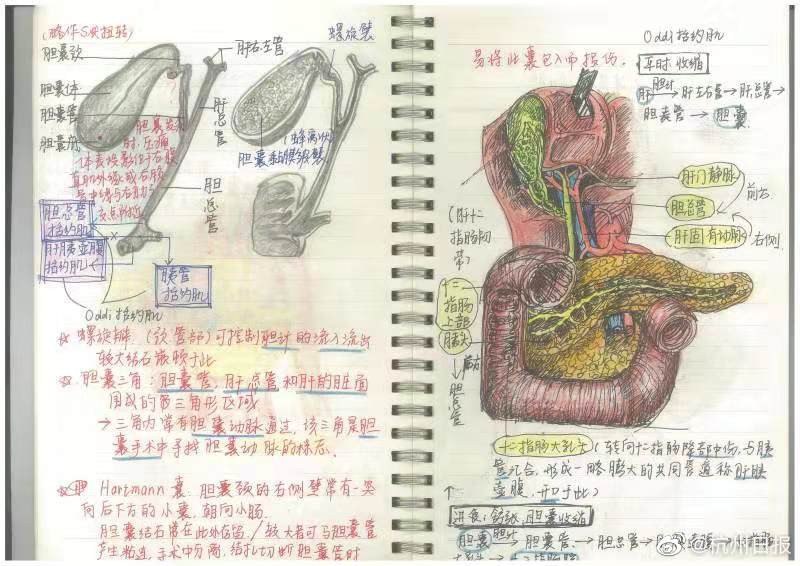 (略作S状扭转)
胆囊颈
胆囊体
胆囊管
胆囊底
肝右左管
肝总管
胆总管
螺旋襞
(蜂窝状)
胆囊黏膜皱襞
胆囊炎
时,压痛
体表投影位于右腹
直肌外缘
胆总管
括约肌
肝胰壶腹
括约肌
胰管
括约肌
Oddi括约肌
☆ 螺旋瓣:(颈管部)可控制胆汁的流入流出
较大结石嵌顿于此
☆ 胆囊三角:胆囊管,肝总管和肝的脏面
围成的三角形区域
→三角内常有胆囊动脉通过,该三角是胆
囊手术中寻找胆囊动脉的标志。
Hartmann囊:胆囊颈的右侧壁常有一突
向后下方的小囊,朝向小肠.
胆囊结石常在此处存留./较大者可与胆囊管
产生粘连,手术中分离,结扎切断胆囊管时
易将此囊包入而损伤。
Oddi括约肌
平时:收缩
肝 胆汁→肝左右管→肝总管→
胆囊管→胆囊
肝门静脉
胆总管
肝固有动脉
前右
右侧
(肝十二
指肠韧
带)
十二
指肠
上部
胰头
后方
↓
胆总管
十二指肠大乳头(转向十二指肠降部中份,与胰
管汇合,形成一略膨大的共同管道称肝胰
壶腹,开口于此)
进食:舒张,胆囊收缩
胆囊 胆汁→胆囊管→胆总管→
@杭州日报